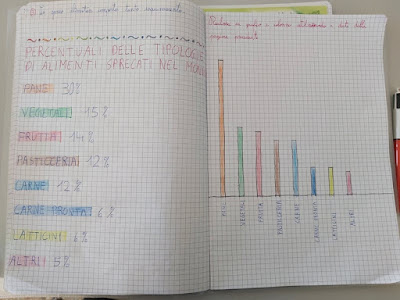 PERCENTUALI DELLE TIPOLOGIE
DI ALIMENTI SPRECATI NEL MON
PANE 30%
VEGETALI 15%
FRUTTA 14%
PASTICCERIA 12%
CARNE 12%
CARNE PRONTA 6%
LATTICINI 6%
ALTRI 5%
un grafico a colonne i dati della
PANE
VEGETALI
FRUTTA
PASTICCERIA
CARNE
CARNE PRONTA
LATTICINI
ALTRI